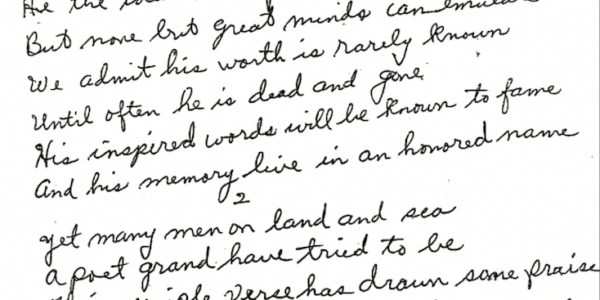 He the
But none but great minds can
We admit his worth is rarely known
Until often he is dead and gone
His inspired words will be known to fame
And his memory live in an honored name
2
yet many men on land and sea
a poet grand have tried to be
verse has drawn some praise